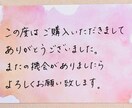 この度は ご購入いただきまして
ありがとうございました。
またの機会がありましたら
よろしくお願い致します。